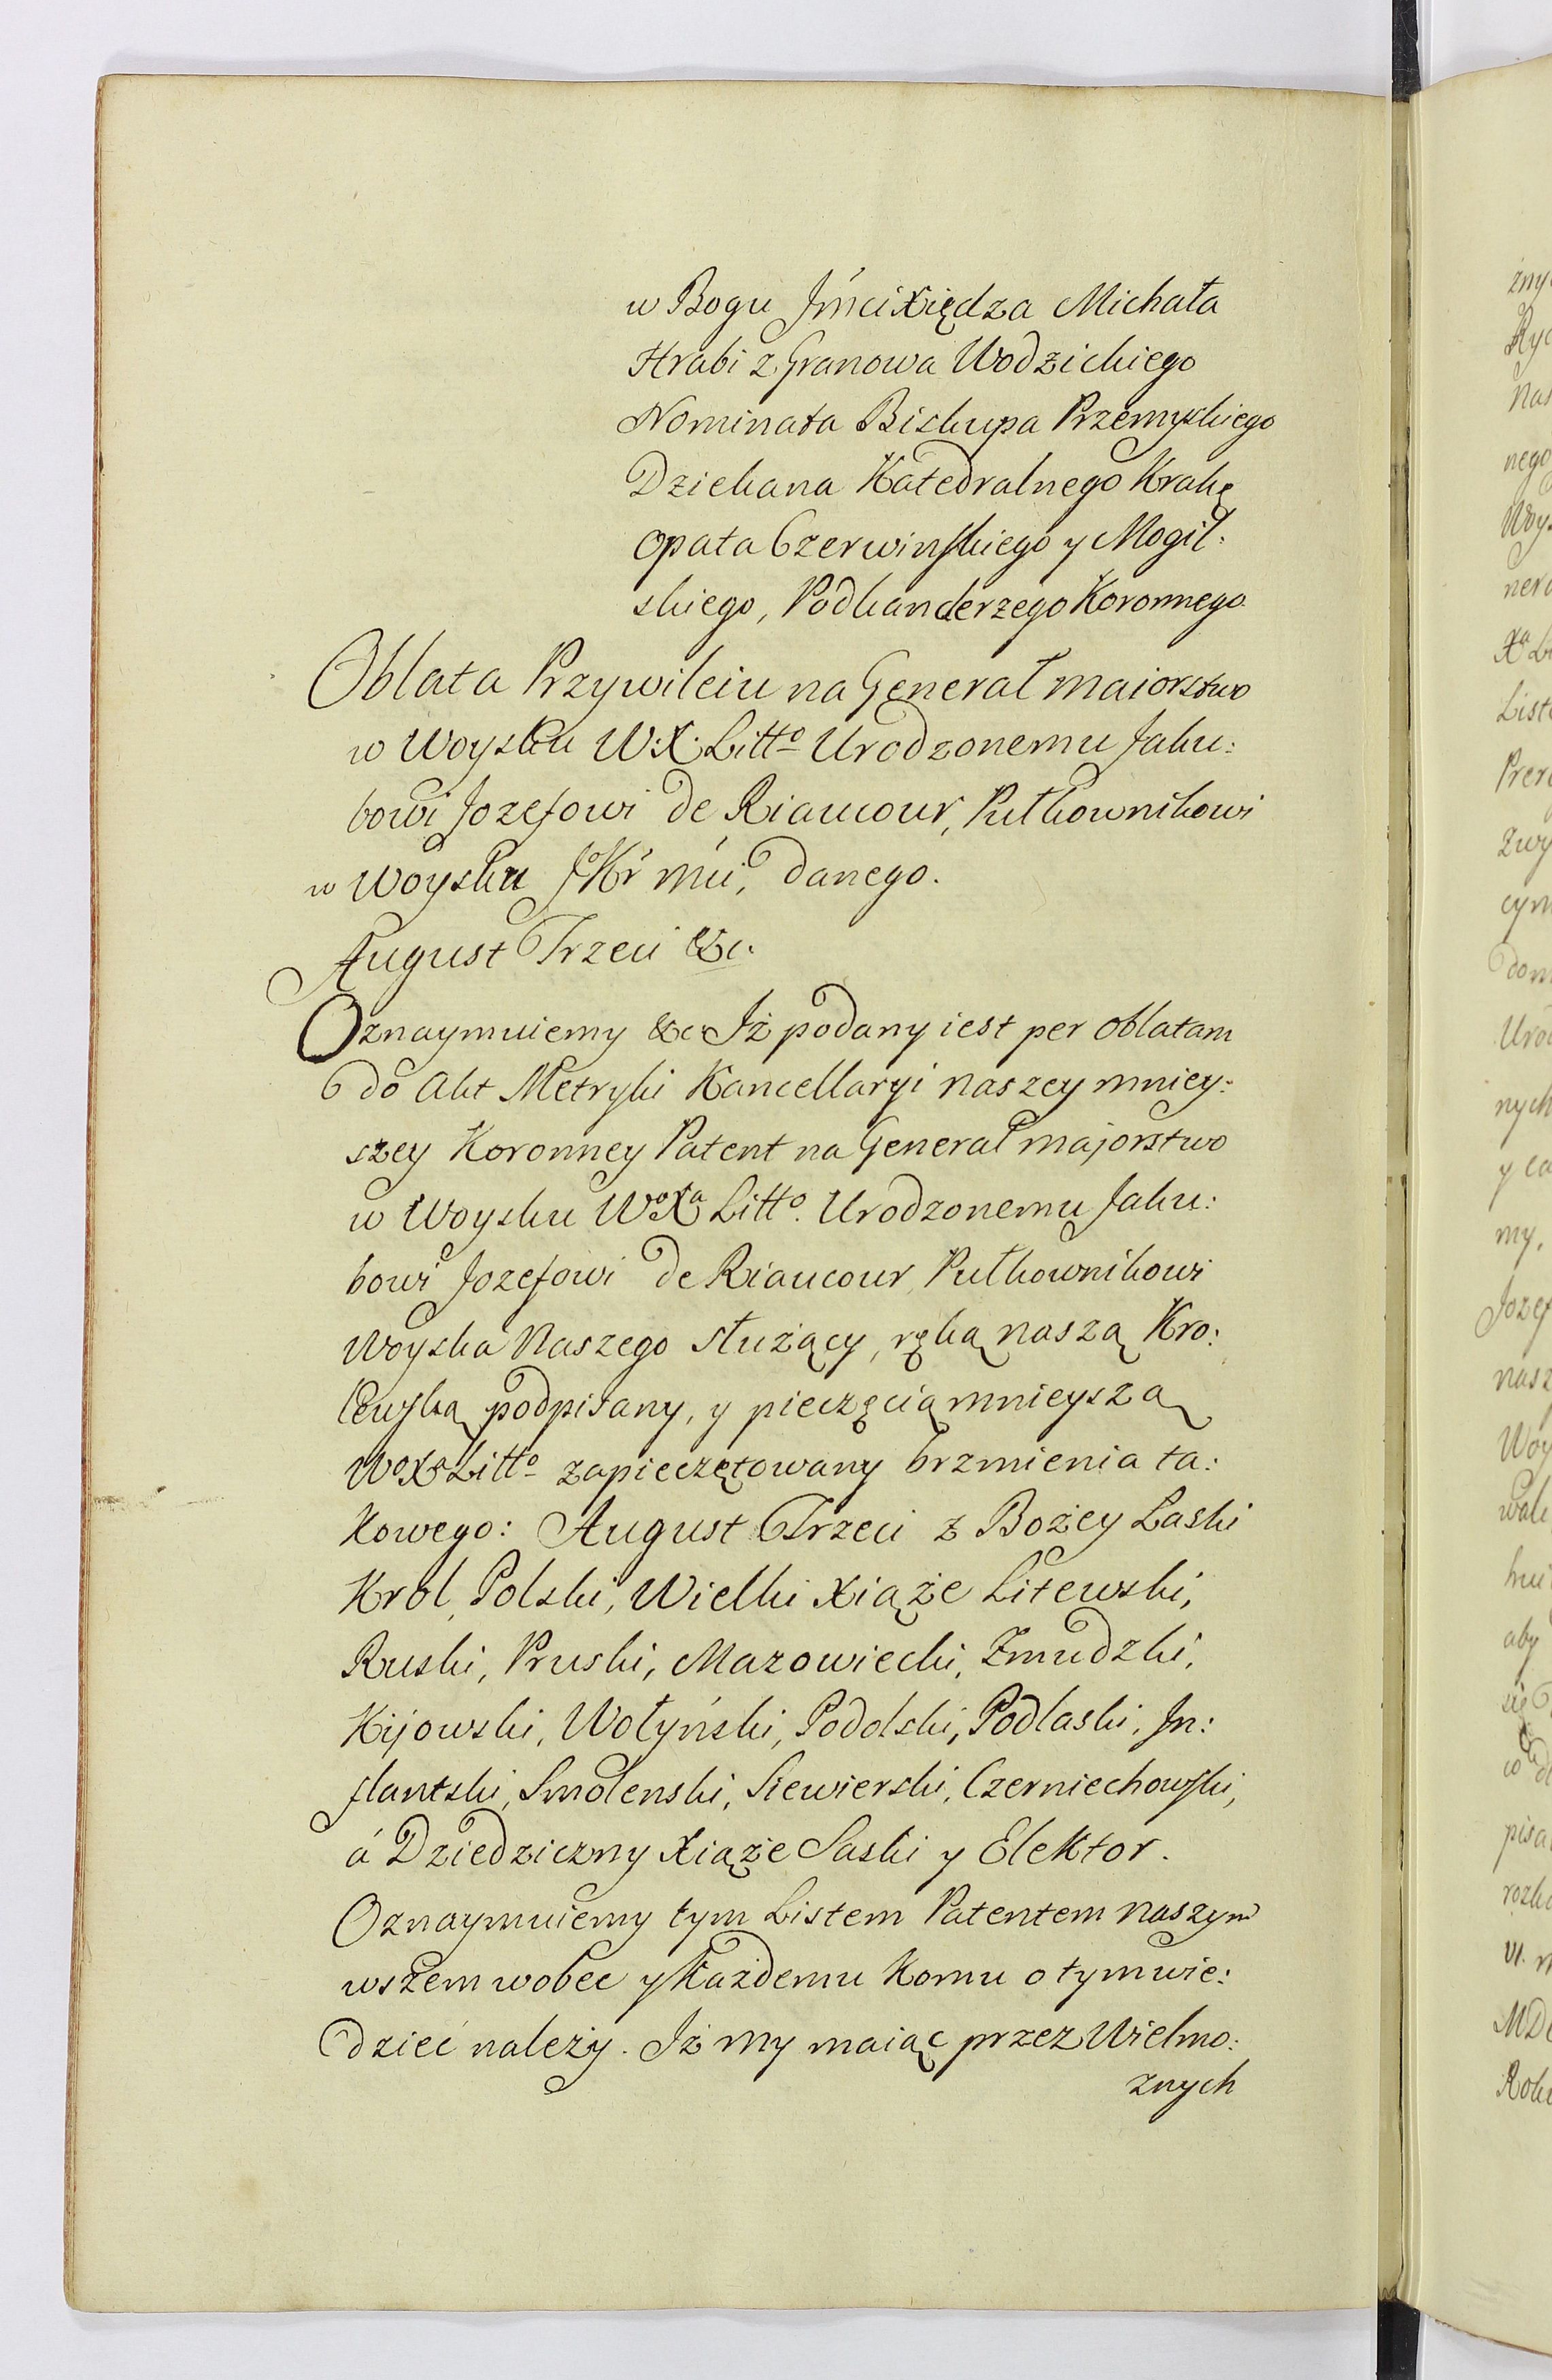 w Bogu Jmci Xiędza Michała
Hrabi z Granowa Wodzickiego
Nominata Biskupa Przemyskiego
Dziekana Katedralnego Krakę
Opata Czerwinskiego y Mogil:
skiego, Podkanclerzego Koronnego
Oblata Przywileiu na Generał maiorstwo
w Woysku W:X: Litto Urodzonemu Jaku:
bowi Jozefowi de Riaucour, Pułkownikowi
w Woysku JKr mći, danego.
August Trzeci &c.
Oznaymuiemy &c Iż podany iest per oblatam
do Akt Metryki Kancellaryi naszey mniey:
szey Koronney Patent na Generał majorstwo
w Woysku Wo Xa Litto. Urodzonemu Jaku:
bowi Jozefowi de Riaucour Pułkownikowi
Woyska Naszego służący, ręką naszą Kro:
lewską podpisany, y pieczęcią mnieyszą
Wo Xa Litto zapieczętowany brzmienia ta:
kowego: August Trzeci z Bożey Laski
Krol Polski, Wielki Xiąże Litewski,
Ruski, Pruski, Mazowiecki, Zmudzki,
Kijowski, Wołyński, Podolski, Podlaski, In:
flantski, Smolenski, Siewierski, Czerniechowski,
á Dziedziczny Xiąże Saski y Elektor.
Oznaymuiemy tym Listem Patentem naszym
wszem wobec y każdemu komu o tym wie:
dzieć należy. Iż my maiąc przez Wielmo:
znych